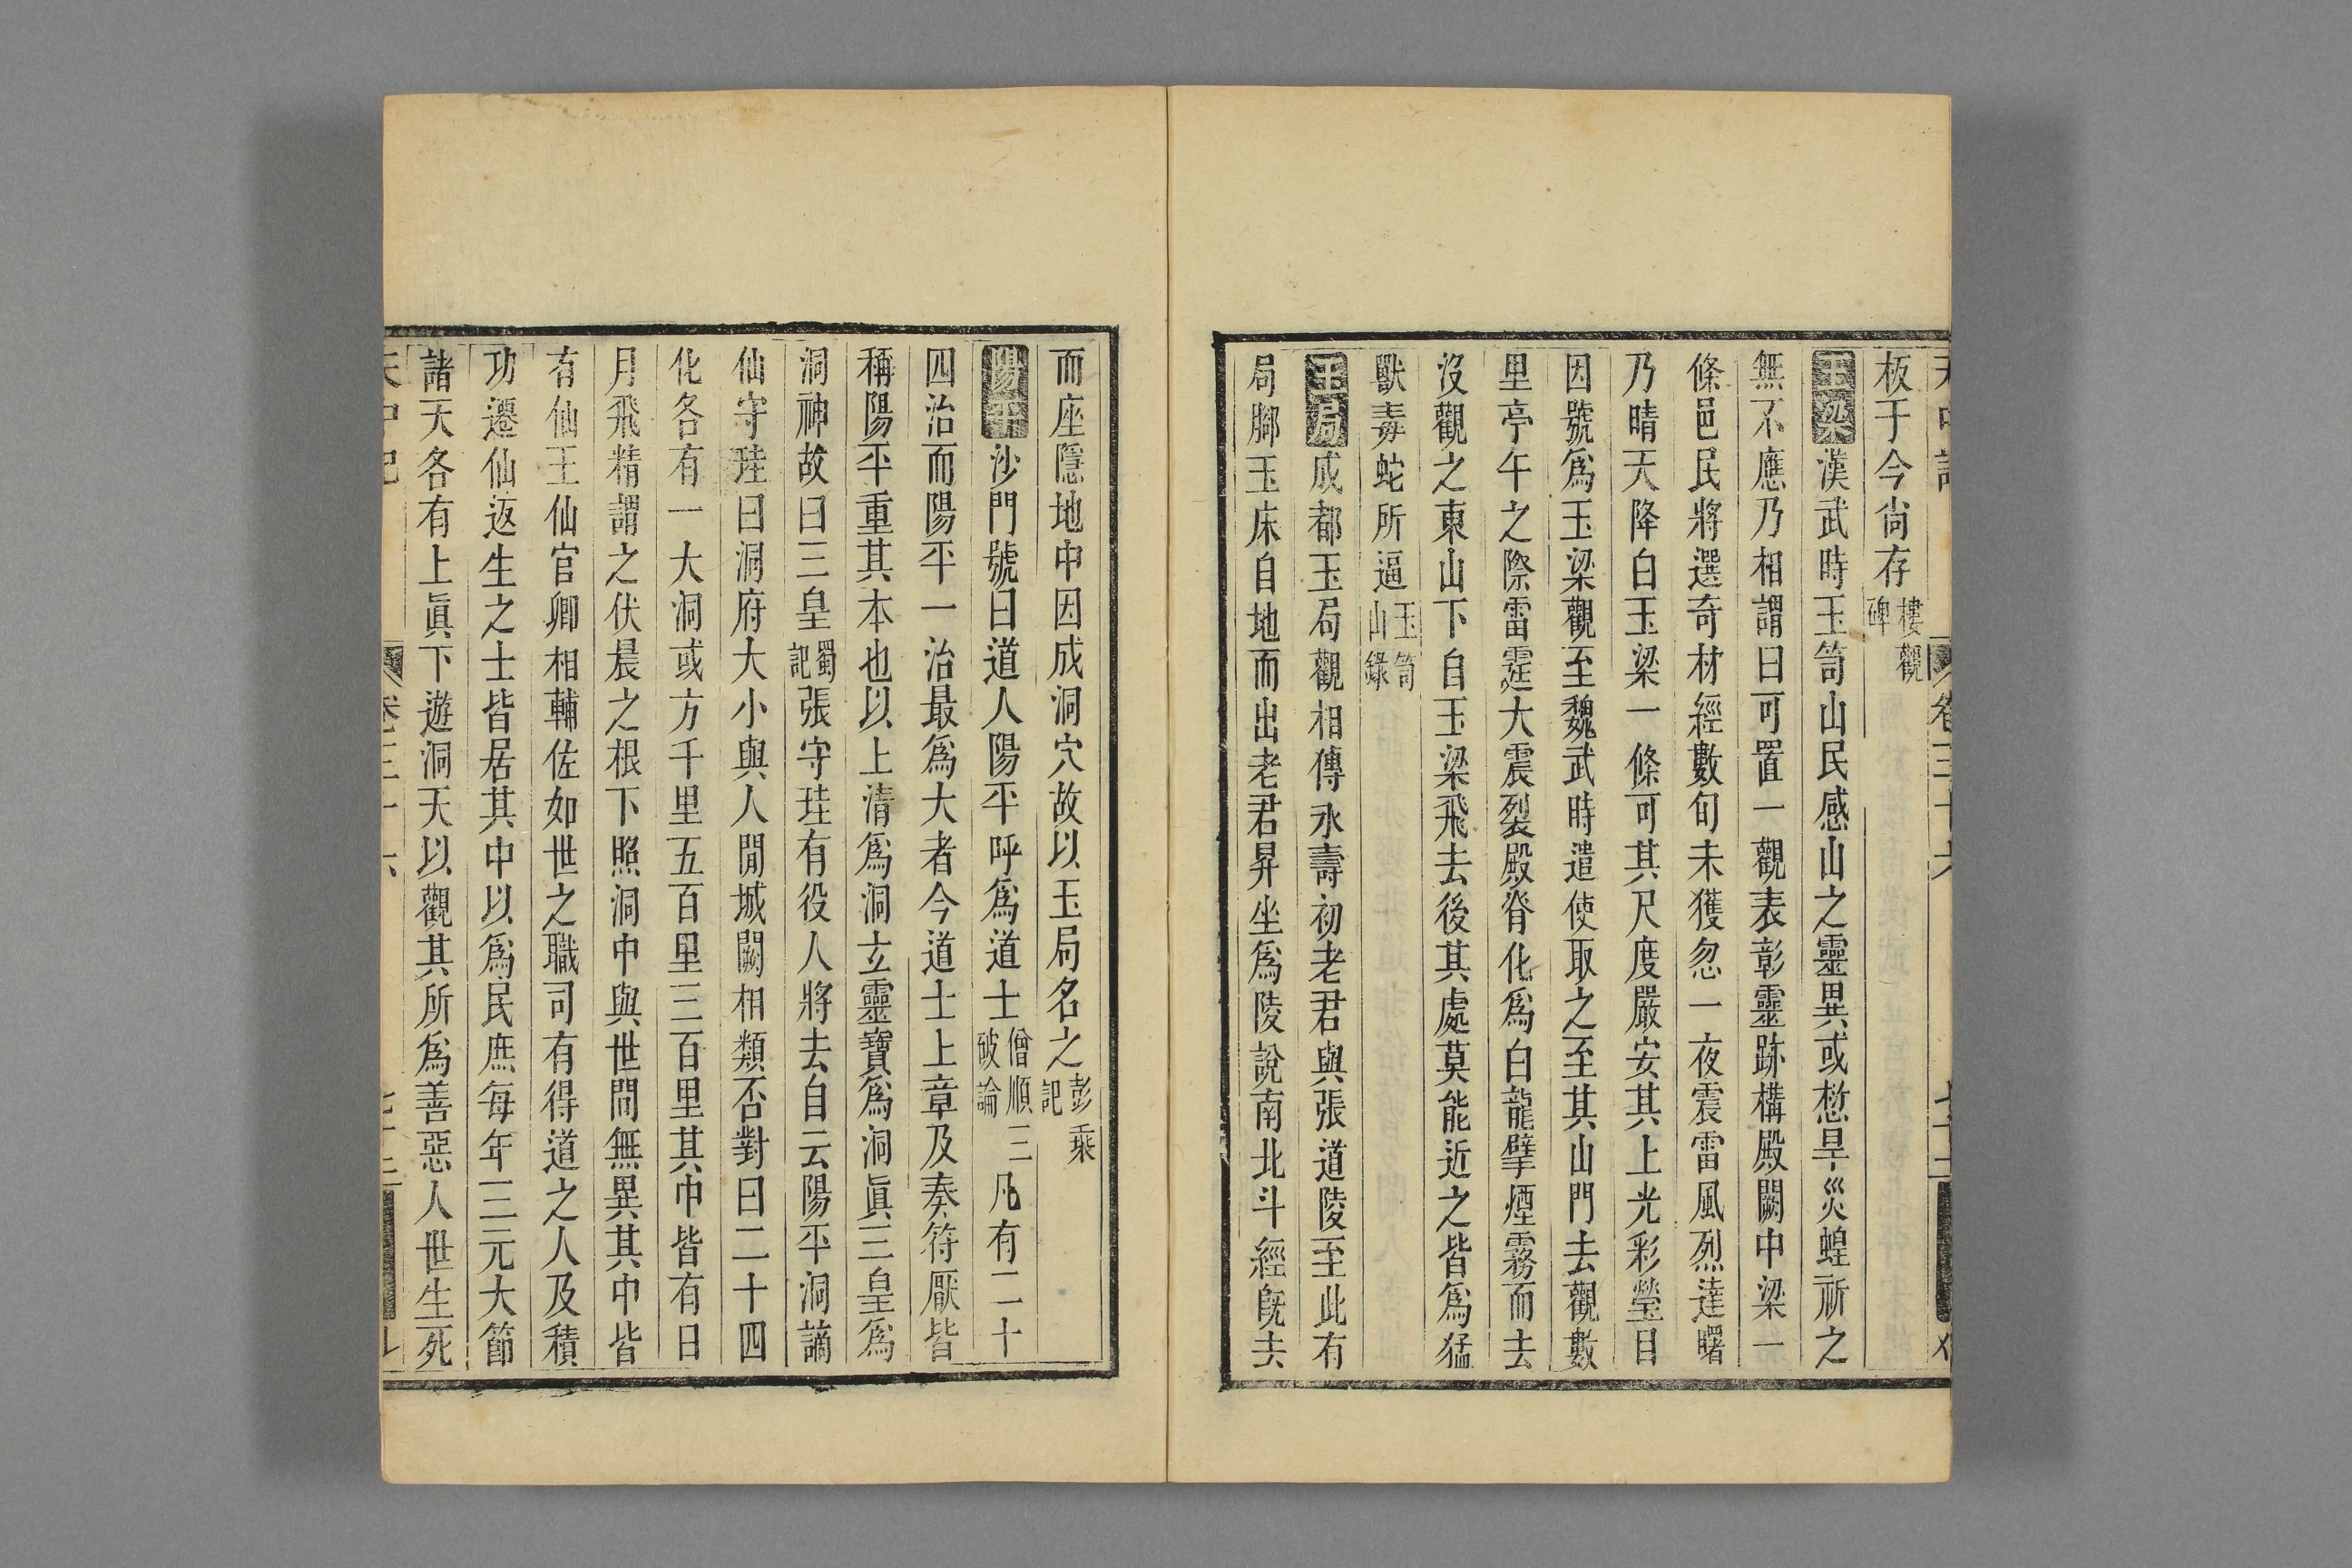 板于今尚存樓觀碑
玉梁漢武時玉笥山民感山之靈異或愁旱災蝗祈之
無不應乃相謂曰可置一觀表彰靈跡構殿闕中梁一
條邑民將選奇材經數旬未獲忽一夜震雷風烈達曙
乃晴天降白玉梁一條可其尺度嚴安其上光彩瑩目
因號爲玉梁觀至魏武時遣使取之至其山門去觀數
里亭午之際雷霆大震裂殿脊化爲白龍擘煙霧而去
沒觀之東山下自玉梁飛去後其處莫能近之皆爲猛
獸毒蛇所逼玉笥山錄
玉局成都玉局觀相傳永壽初老君與張道陵至此有
局脚玉床自地而出老君昇坐爲陵說南北斗經旣去
而座隱地中因成洞穴故以玉局名之彭乘記
陽平沙門號曰道人陽平呼爲道士僧順三破論凡有二十
四治而陽平一治最爲大者今道士上章及奏符厭皆
稱陽平重其本也以上清爲洞玄靈寶爲洞眞三皇爲
洞神故曰三皇蜀記張守珪有役人將去自云陽平洞謫
仙守珪曰洞府大小與人間城闕相類否對曰二十四
化各有一大洞或方千里五百里三百里其中皆有日
月飛精謂之伏晨之根下照洞中與世間無異其中皆
有仙王仙官卿相輔佐如世之職司有得道之人及積
功遷仙返生之士皆居其中以爲民庶每年三元大節
諸天各有上眞下遊洞天以觀其所爲善惡人世生死